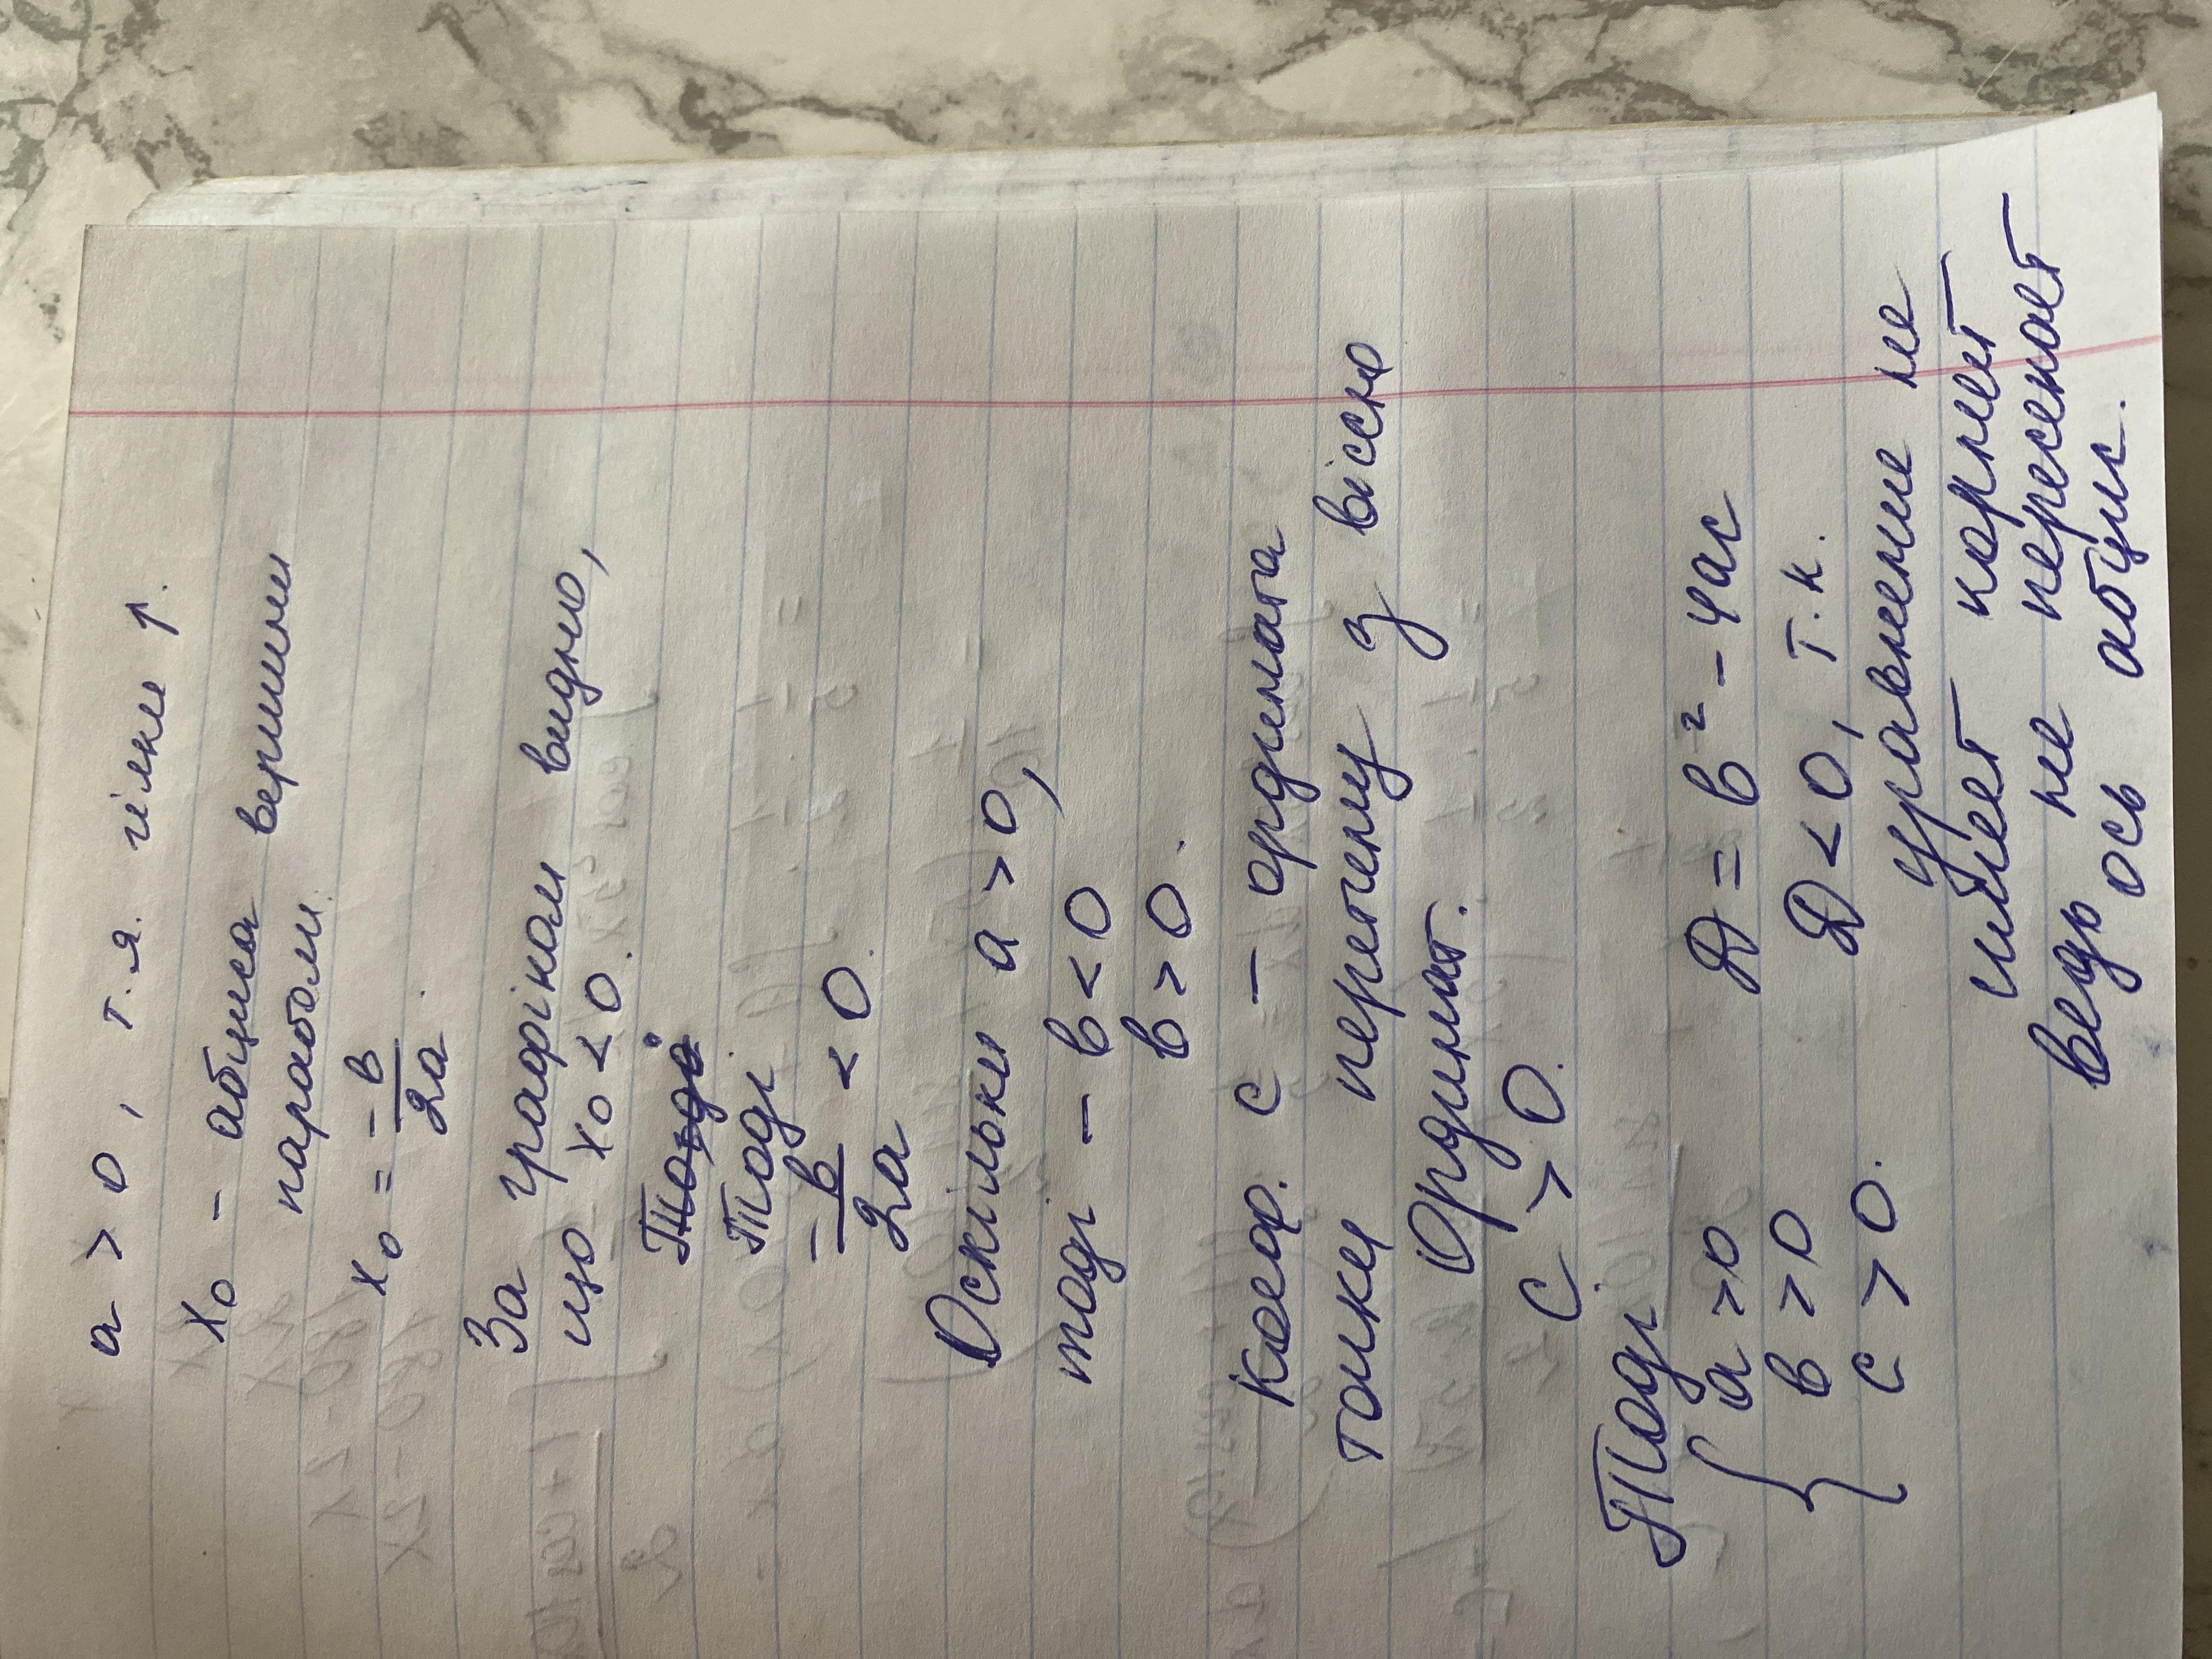 a > 0, т.я. гілки ↑.
x₀ – абциса вершини
параболи.
x₀ = -в/2a.
За графіком видно,
що x₀ < 0.
Тоді
Тоді
-в/2a < 0.
Оскільки a > 0,
тоді – в < 0
в > 0.
Коеф. с – ордината
толки перетину з вісею
Ординат.
с > 0.
Тоді
{ a > 0
в > 0
c > 0.
D = в² – 4ac
D < 0, т.к.
Уравнение не
имеет корней
ведь не пересекает
ось абцис.